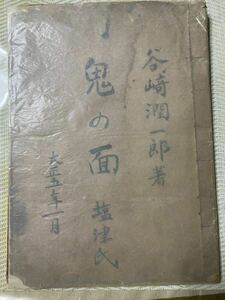 谷崎潤一郎著
鬼の面
塩津氏
大正五年一月